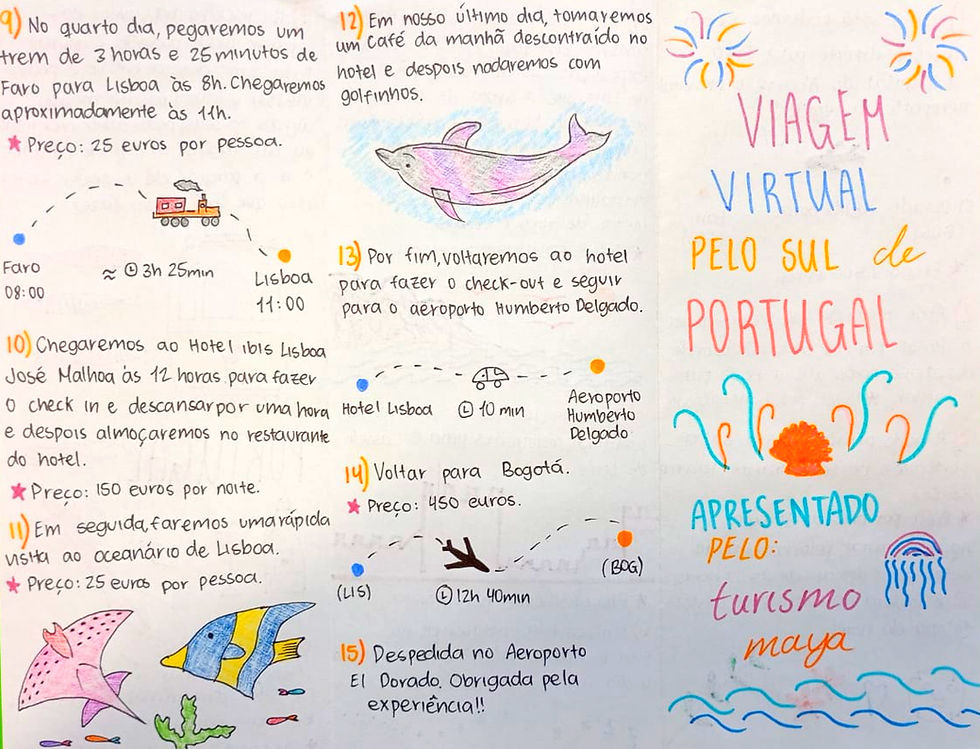 9) No quarto dia, pegaremos um
trem de 3 horas e 25 minutos de
Faro para Lisboa às 8h. Chegaremos
aproximadamente às 11h.
★ Preço: 25 euros por pessoa.
Faro
08:00
≈ 3h 25min
Lisboa
11:00
10) Chegaremos ao Hotel ibis Lisboa
José Malhoa às 12 horas para fazer
o check in e descansar por uma hora
e despois almoçaremos no restaurante
do hotel.
★ Preço: 150 euros por noite.
11) Em seguida, faremos uma rápida
visita ao oceanário de Lisboa.
★ Preço: 25 euros por pessoa.
12) Em nosso último dia, tomaremos
um café da manhã descontraído no
hotel e despois nadaremos com
golfinhos.
13) Por fim, voltaremos ao hotel
para fazer o check-out e seguir
para o aeroporto Humberto Delgado.
Hotel Lisboa
10 min
Aeroporto
Humberto
Delgado
14) Voltar para Bogotá.
★ Preço: 450 euros.
(LIS)
12h 40min
(BOG)
15) Despedida no Aeroporto
El Dorado. Obrigada pela
experiência!!
VIAGEM
VIRTUAL
PELO SUL de
PORTUGAL
APRESENTADO
PELO:
turismo
maya